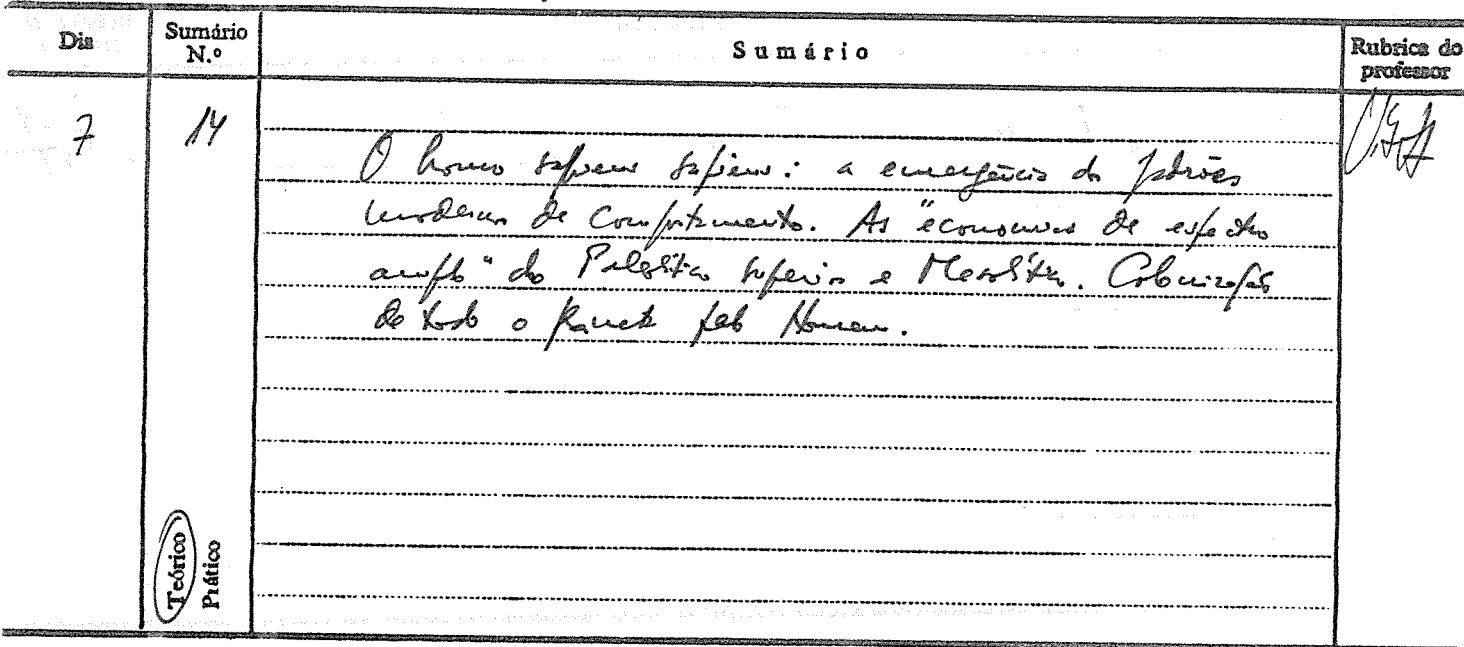 Dia
Sumário N.º
Sumário
Rubrica do professor
7
14
O homo sapiens sapiens: a emergência de padrões
modernos de comportamento. As "economias de espectro
amplo" do Paleolítico Superior e Mesolítico. Colonização
de todo o planeta pelo Homem.
Teórico
Prático